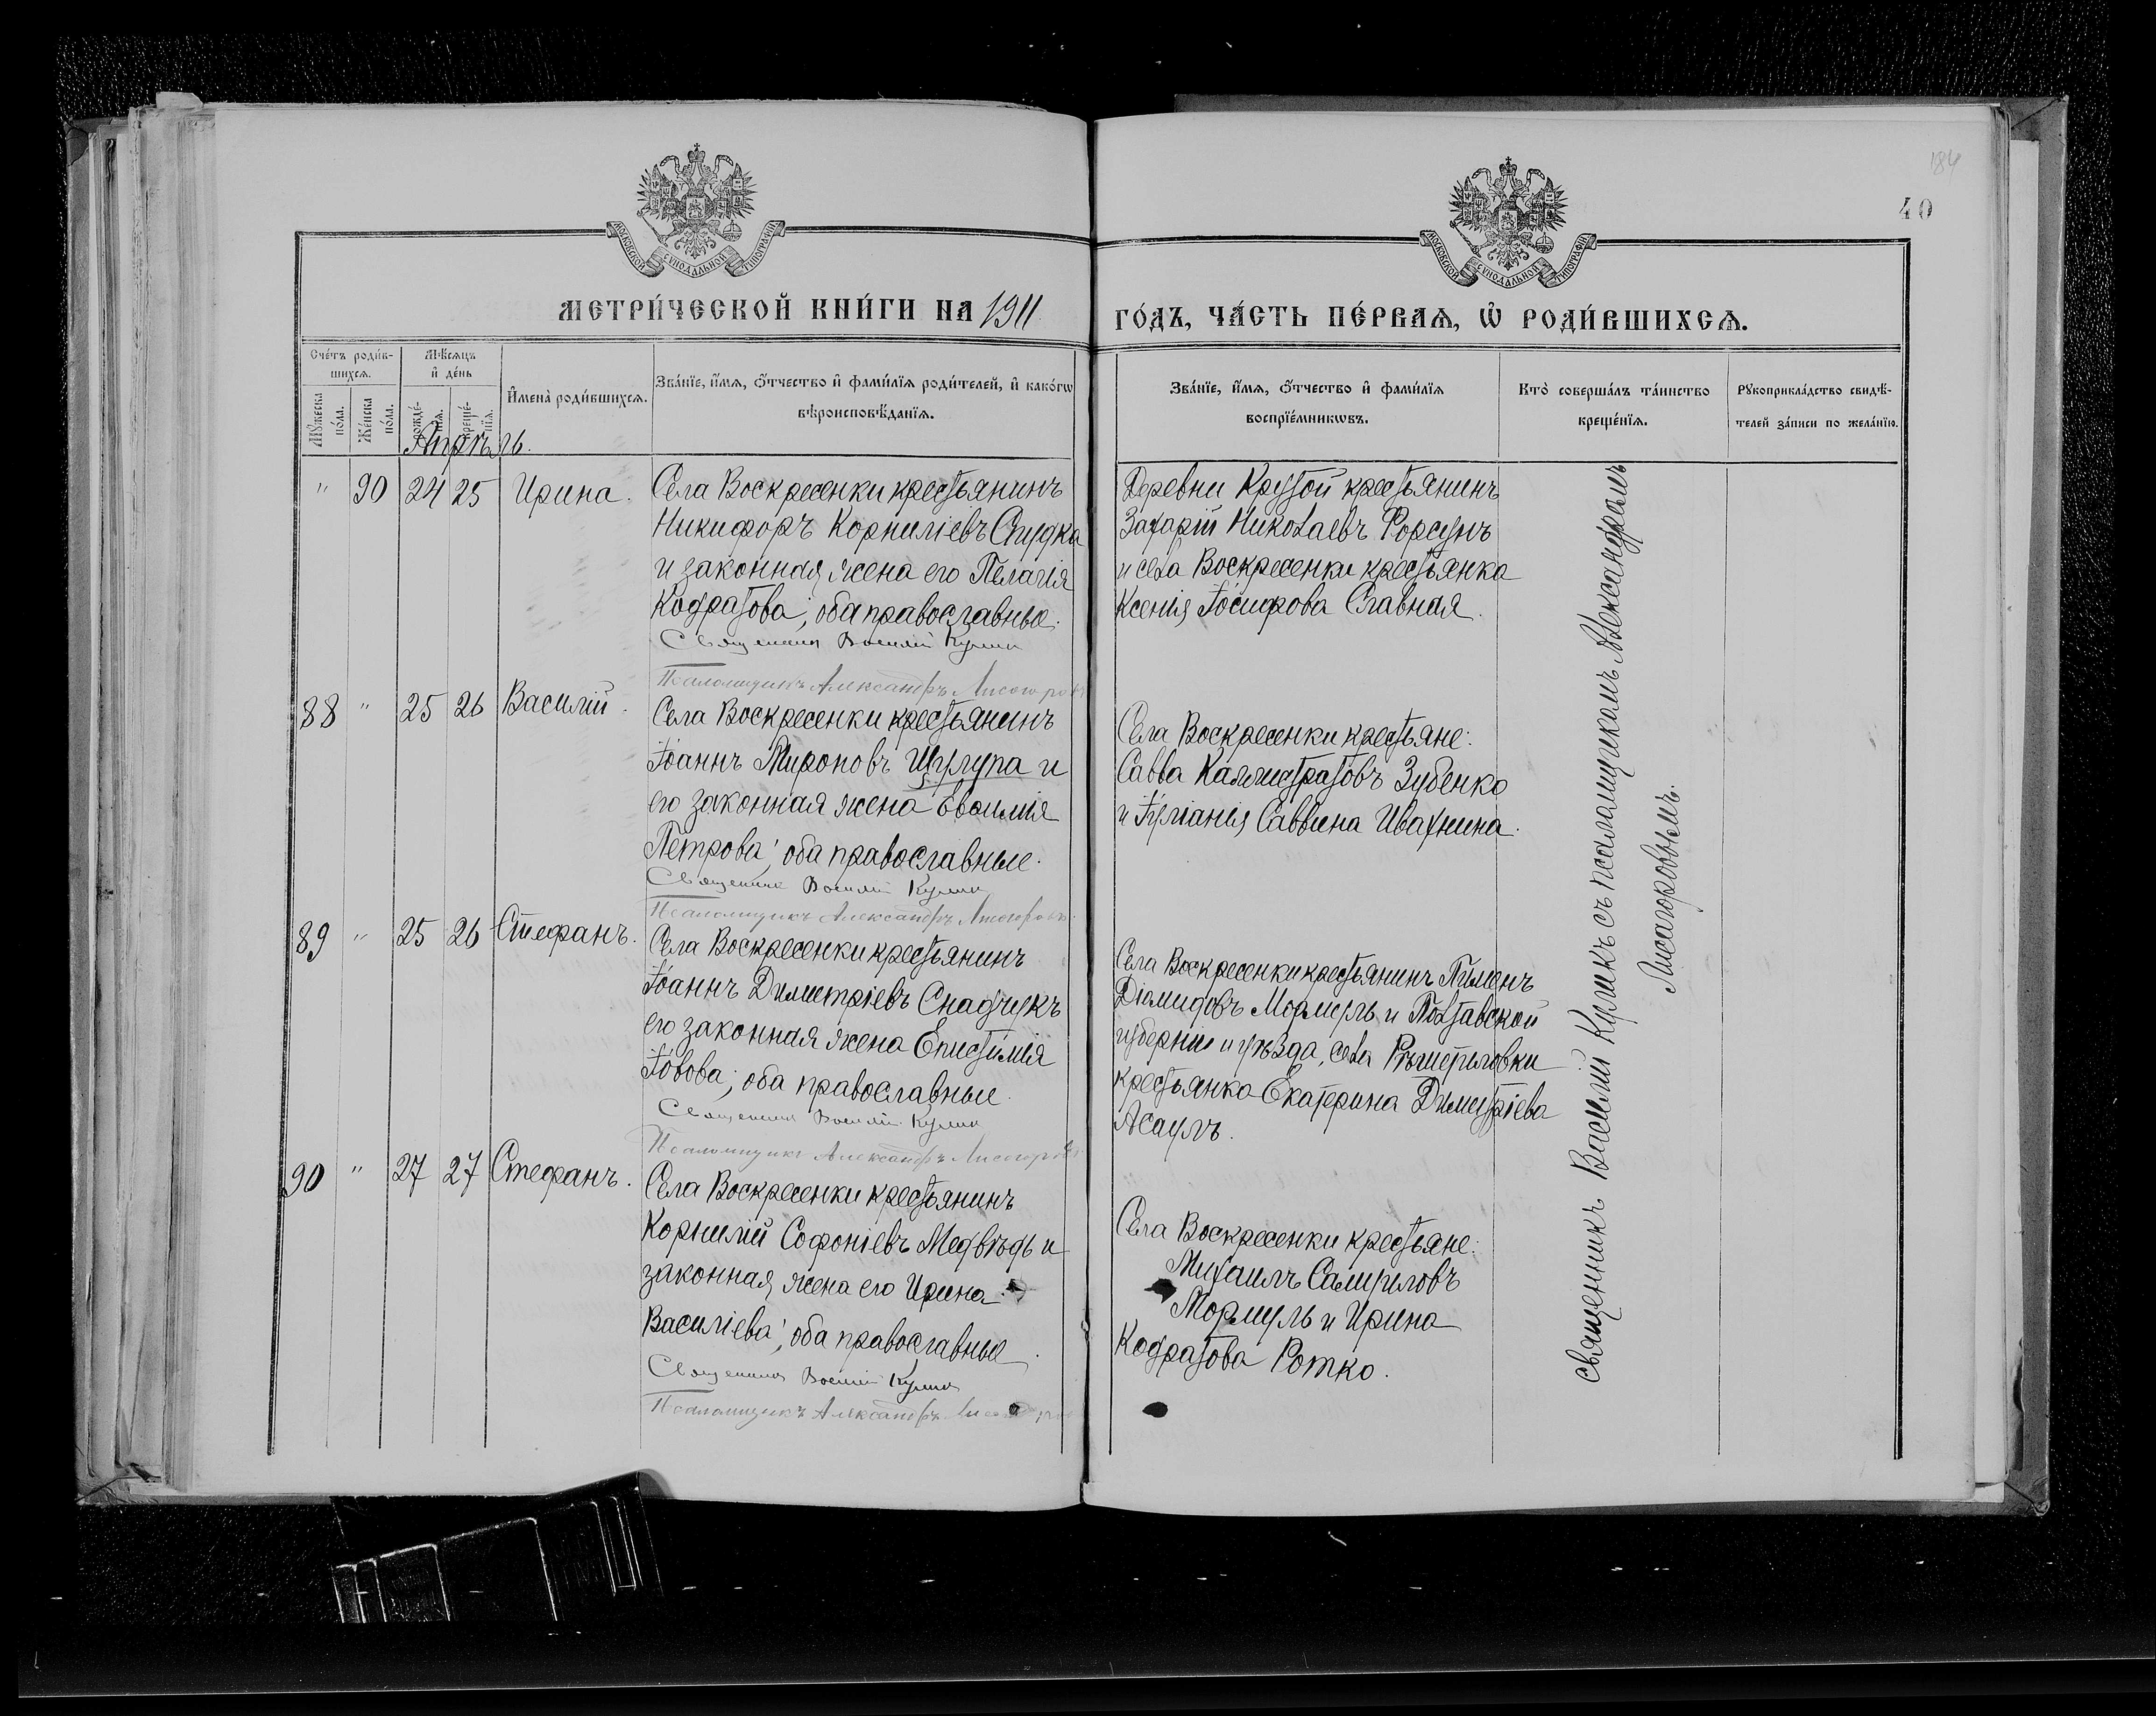 184
40
МОСКОВСКОЙ СѴНОДАЛЬНОЙ ТИПОГРАФІИ
МОСКОВСКОЙ СѴНОДАЛЬНОЙ ТИПОГРАФІИ
МЕТРИ́ЧЕСКОЙ КНИ́ГИ НА 1911 ГО́ДЪ, ЧА́СТЬ ПЕ́РВАѦ, Ѡ РОДИ́ВШИХСѦ.
Сче́тъ роди́в-
шихсѧ.
Мꙋжеска по́ла.
Же́нска по́ла.
Мѣ́сѧцъ
и҆ де́нь
рожде́-
нїѧ.
креще́-
нїѧ.
И҆мена̀ роди́вшихсѧ.
Зва́нїе, и҆́мѧ, ѻ҆́тчество и҆ фами́лїѧ роди́телей, и҆ како́гѡ
вѣроисповѣ́данїѧ.
Зва́нїе, и҆́мѧ, ѻ҆́тчество и҆ фами́лїѧ
воспрїе́мникѡвъ.
Кто̀ соверша́лъ та́инство
креще́нїѧ.
Рꙋкоприкла́дство свидѣ́-
телей за́писи по жела́нїю.
Апрѣль.
" 90 24 25 Ирина.
Села Воскресенки крестьянинъ
Никифоръ Корниліевъ Спудка
и законная жена его Пелагія
Кодратова; оба православные.
Священникъ Василій Куликъ
Псаломщикъ Александръ Лисогоровъ
Деревни Крутой крестьянинъ
Захарій Николаевъ Форсунъ
и села Воскресенки крестьянка
Ксенія Іосифова Славная.
88 " 25 26 Василій.
Села Воскресенки крестьянинъ
Іоаннъ Мироновъ Шулупа и
его законная жена Евфимія
Петрова; оба православные.
Священникъ Василій Куликъ
Псаломщикъ Александръ Лисогоровъ
Села Воскресенки крестьяне:
Савва Каллистратовъ Зубенко
и Іуліанія Саввина Ивахнина.
89 " 25 26 Стефанъ.
Села Воскресенки крестьянинъ
Іоаннъ Димитріевъ Снадчукъ
его законная жена Епистимія
Іовова; оба православные.
Священникъ Василій Куликъ
Псаломщикъ Александръ Лисогоровъ
Села Воскресенки крестьянинъ Пименъ
Діомидовъ Мормуль и Полтавской
губерніи и уѣзда, села Рѣшетиловки
крестьянка Екатерина Димитріева
Асаулъ.
90 " 27 27 Стефанъ.
Села Воскресенки крестьянинъ
Корнилій Софоніевъ Медвѣдь и
законная жена его Ирина
Василіева; оба православные.
Священникъ Василій Куликъ
Псаломщикъ Александръ
Села Воскресенки крестьяне:
Михаилъ Самуиловъ
Мормуль и Ирина
Кодратова Ротко.
Священникъ Василій Куликъ съ псаломщикомъ Александромъ
Лисогоровымъ.